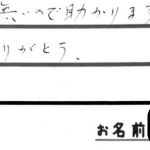 無いので助かります
りがとう、
お名前